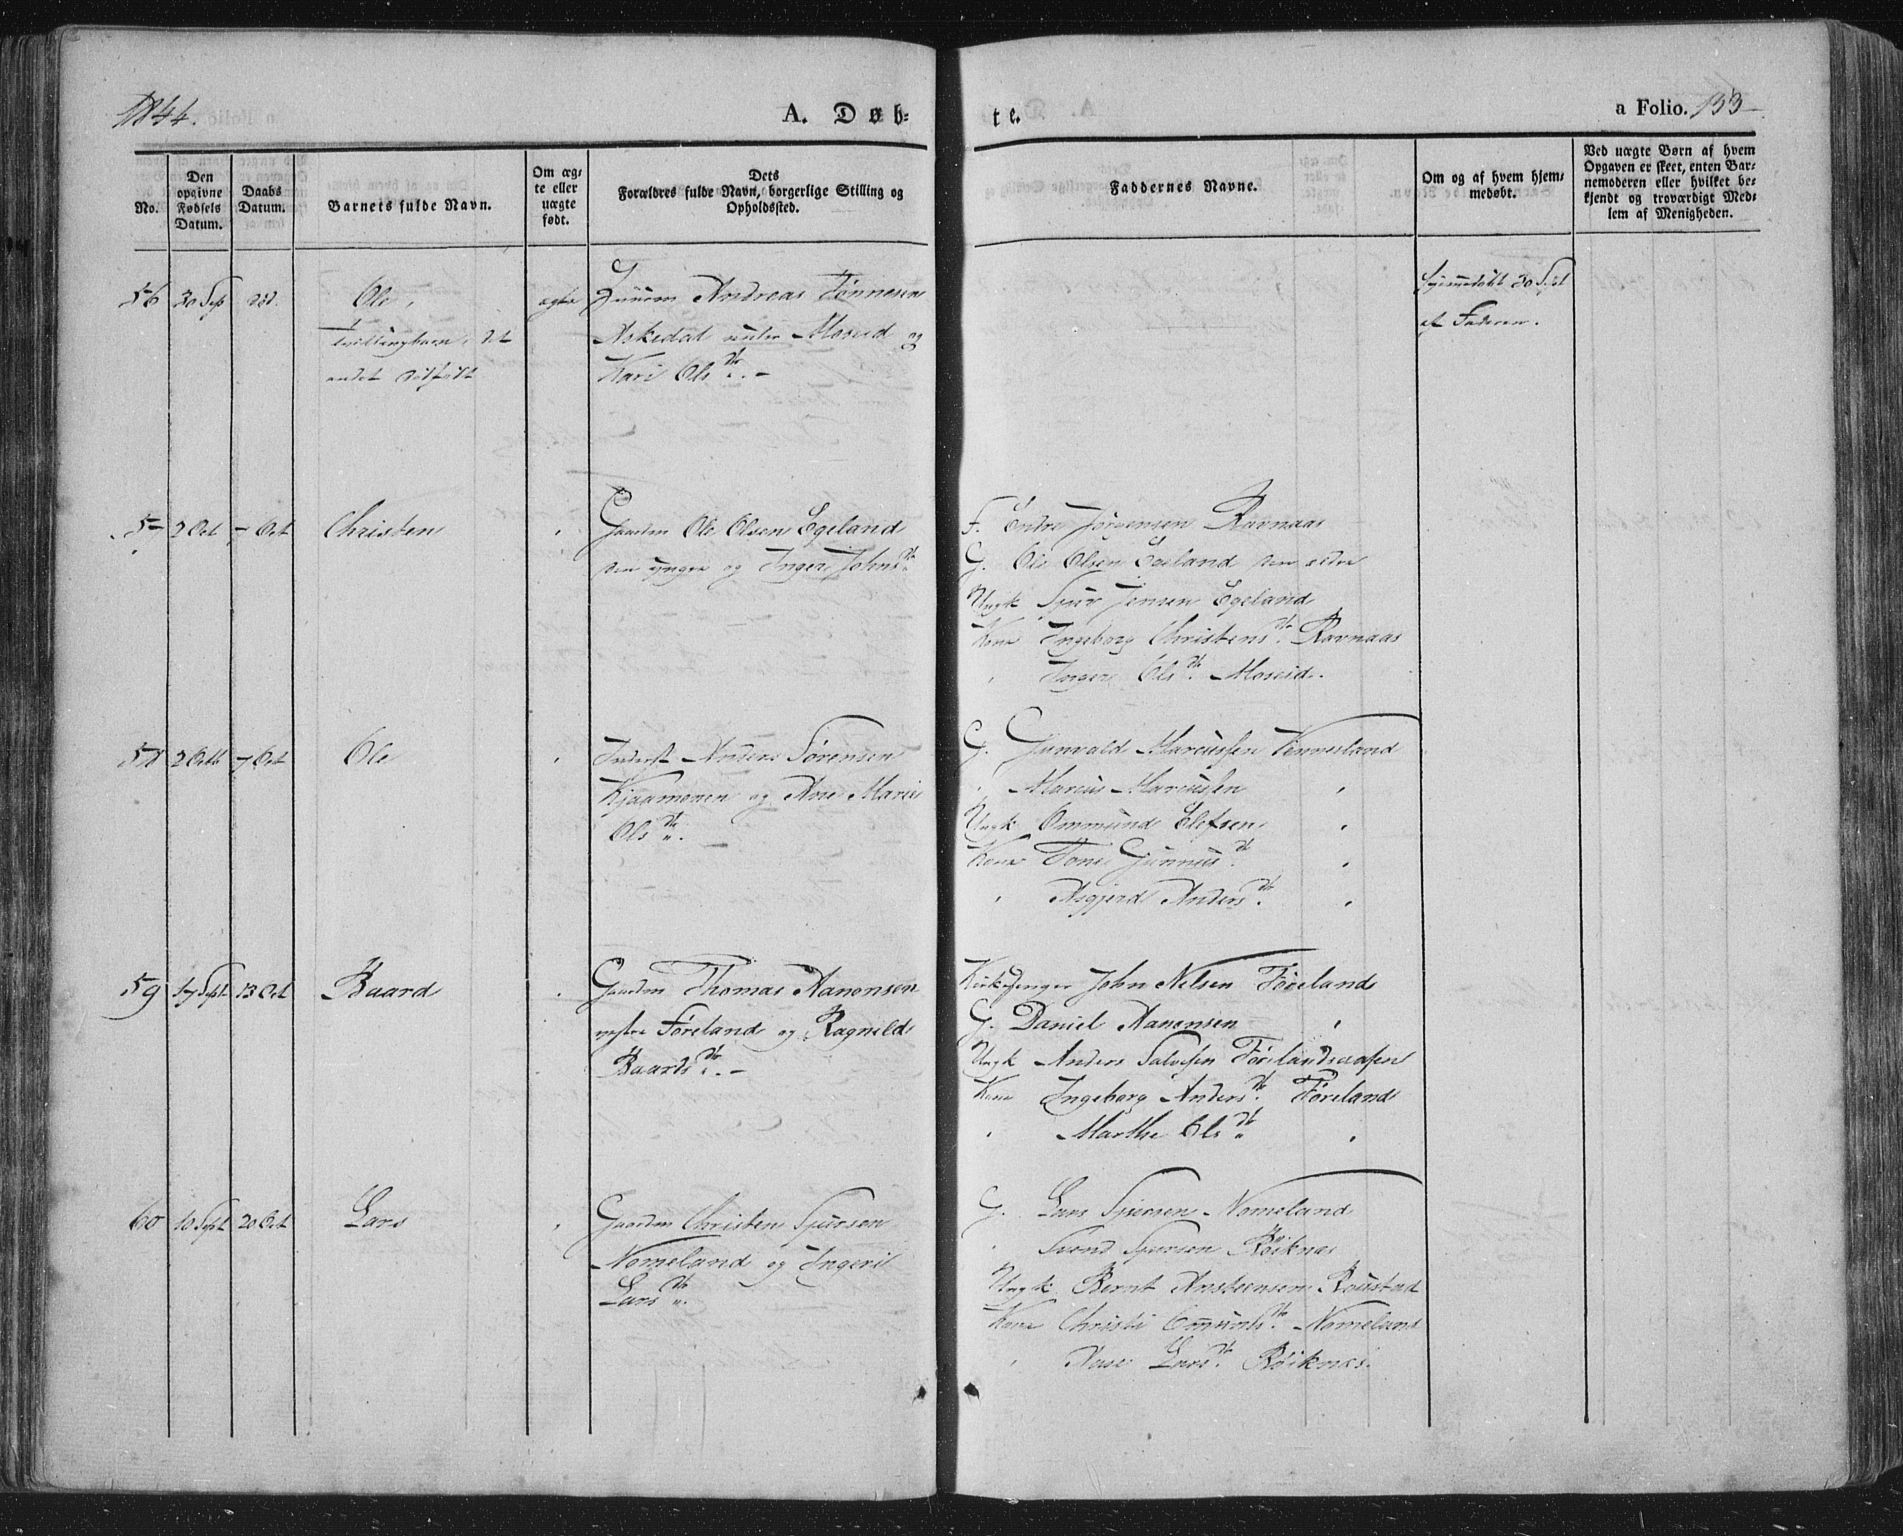 1844.
A. Døb-
te.
a Folio. 133
No.
Den opgivne Fødsels Datum.
Daabs Datum.
Barnets fulde Navn.
Om ægte eller uægte født.
Dets
Forældres fulde Navn, borgerlige Stilling og
Opholdssted.
Faddernes Navne.
Om og af hvem hjemmedøbt.
Ved uægte Børn af hvem
Opgaven er skeet, enten Bar-
nemoderen eller hvilket be-
kjendt og troværdigt Med-
lem af Menigheden.
56 30 Sep Ole, ægte Andreas Tønnesen
Tvillingbarn, det
andet dødfødt
Askedal under Moseid og
Kari Olsdtr. -
hjemmedøbt 30 Sept
af Faderen.
57 2 Oct 7 Oct Christen Gaardm Ole Olsen Egeland
den yngre og Inger Johnsdtr
F. Endre Jørgensen Ravnaas
G. Ole Olsen Egeland den eldre
Ungk Sjur Jensen Egeland
Kone Ingeborg Christensdtr. Ravnaas
" Inger Olsdtr. Moseid.
58 2 Octb 7 Oct Ole Inderst Anders Sørensen
Kjaamonen og Ane Marie
Olsdtr.
G. Gunvald Marcussen Vennesland
" Marcus Marcussen "
Ungk Ommund Elefsen "
Kone Tone Gunnusdtr. "
" Asgjerd Andersdtr. "
59 17 Sept 13 Oct Baard Gaardm Thomas Aanonsen
nystre Føreland og Ragnild
Baardsdtr. -
Kirkesanger John Nilsen Føreland
G. Daniel Aanonsen "
Ungk Anders Salvesen Førelandsaasen
Kone Ingeborg Andersdtr. Føreland
" Marthe Olsdtr "
60 10 Sept 20 Oct Lars Gaardm Christen Sjursen
Nomeland og Ingeri
Larsdtr.
G. Lars Sjursen Nomeland
" Svend Sjursen Røiknes
Ungk Bernt Anstensen Roustad
Kone Christi Omundsdtr. Nomeland
" Aase Larsdtr. Røiknes.